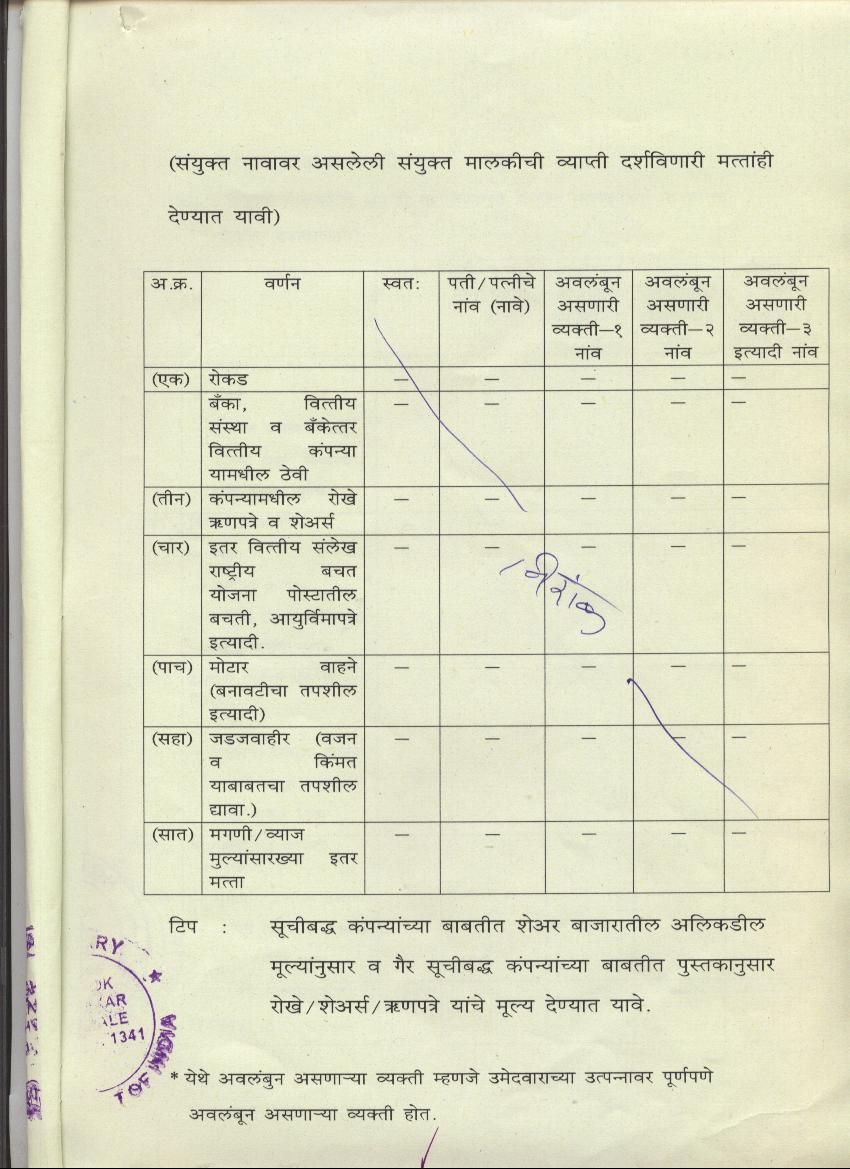 (संयुक्त नावावर असलेली संयुक्त मालकीची व्याप्ती दर्शविणारी मत्तांही
देण्यात यावी)
अ.क्र. वर्णन स्वत: पती/पत्नीचे नांव (नावे) अवलंबून असणारी व्यक्ती–१ नांव अवलंबून असणारी व्यक्ती–२ नांव अवलंबून असणारी व्यक्ती–३ इत्यादी नांव
(एक) रोकड — — — — —
बँका, वित्तीय — — — — —
संस्था व बँकेत्तर
वित्तीय कंपन्या
यामधील ठेवी
(तीन) कंपन्यामधील रोखे — — — — —
ऋणपत्रे व शेअर्स
(चार) इतर वित्तीय संलेख — — — — —
राष्ट्रीय बचत
योजना पोस्टातील
बचती, आयुर्विमापत्रे
इत्यादी.
(पाच) मोटार वाहने — — — — —
(बनावटीचा तपशील
इत्यादी)
(सहा) जडजवाहीर (वजन — — — — —
व किंमत
याबाबतचा तपशील
द्यावा.)
(सात) मगणी/व्याज — — — — —
मुल्यांसारख्या इतर
मत्ता
टिप : सूचीबद्ध कंपन्यांच्या बाबतीत शेअर बाजारातील अलिकडील
मूल्यांनुसार व गैर सूचीबद्ध कंपन्यांच्या बाबतीत पुस्तकानुसार
रोखे/शेअर्स/ऋणपत्रे यांचे मूल्य देण्यात यावे.
* येथे अवलंबुन असणाऱ्या व्यक्ती म्हणजे उमेदवाराच्या उत्पन्नावर पूर्णपणे
अवलंबून असणाऱ्या व्यक्ती होत.
1341
OF INDIA